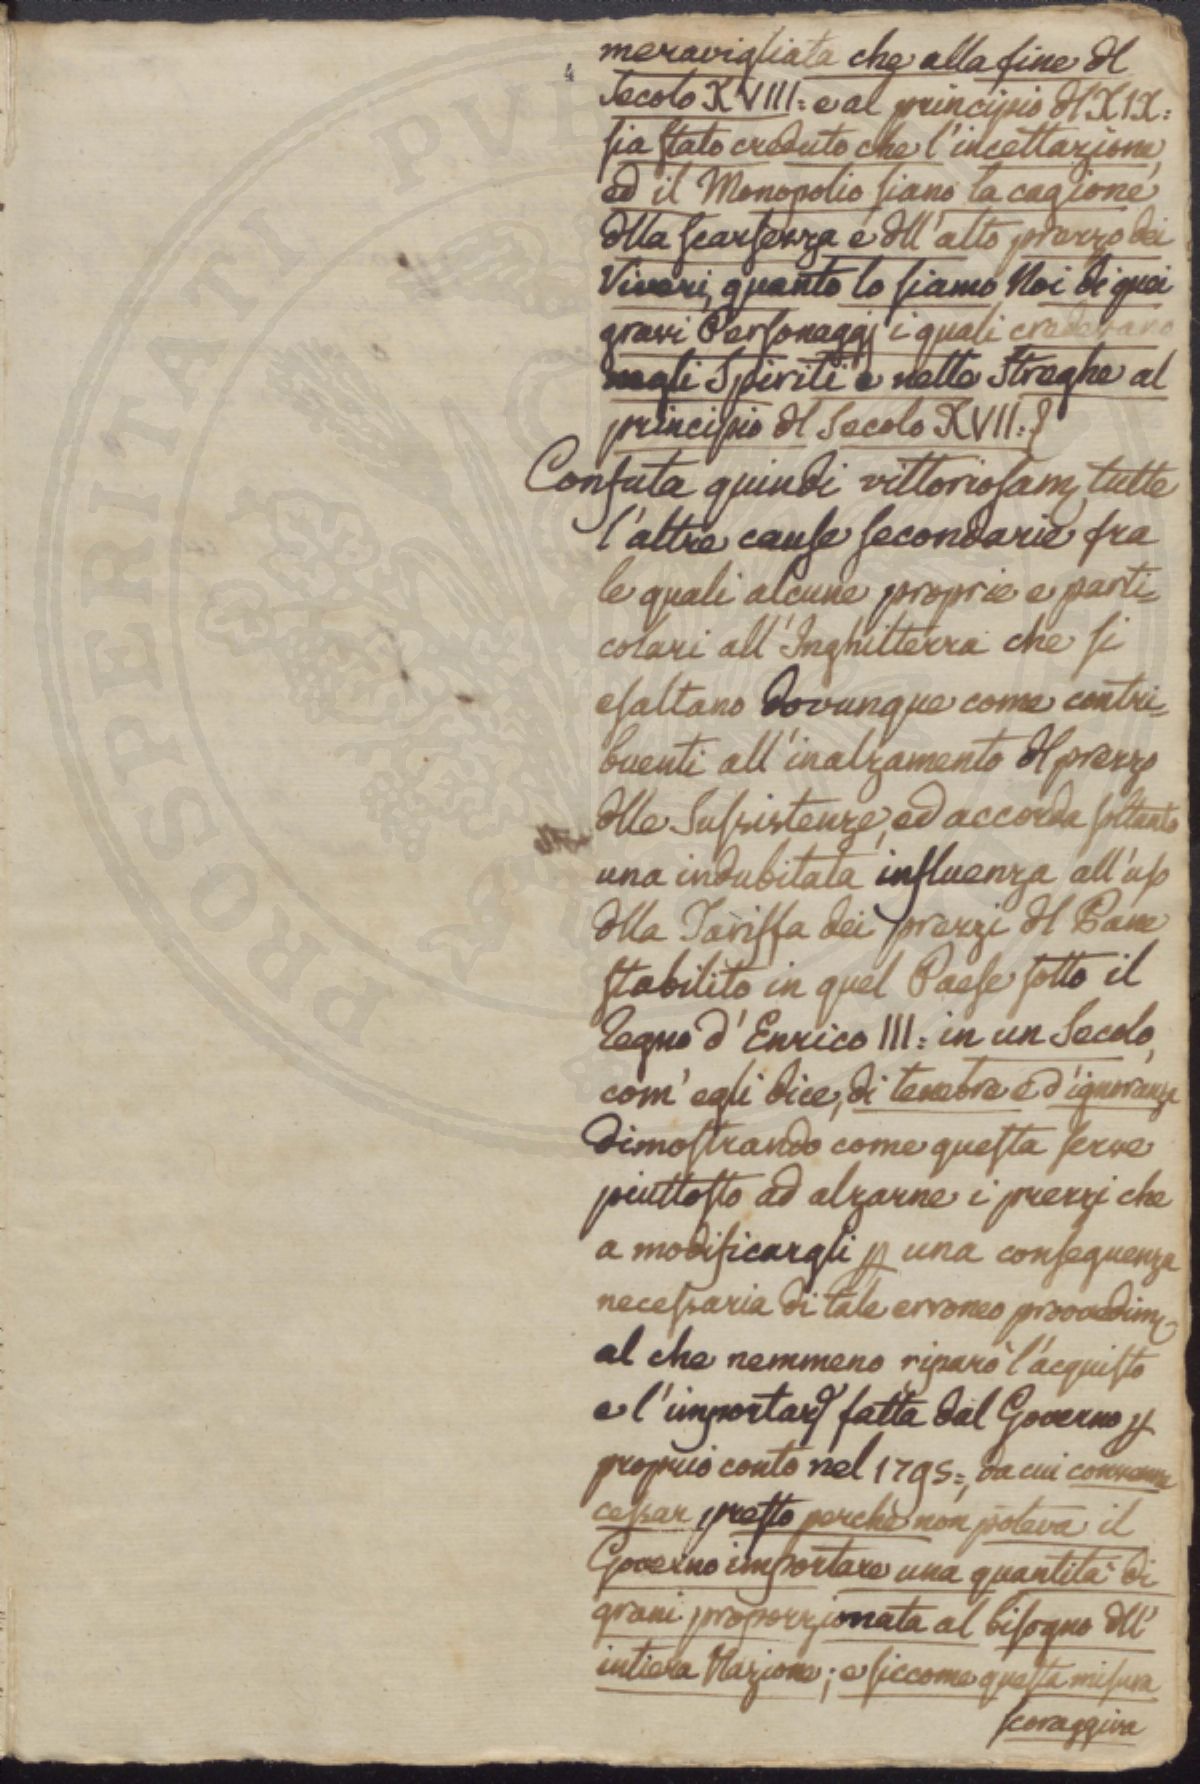 4
meravigliata che alla fine dl
Secolo XVIII: e al principio dl XIX:
sia stato creduto che l'incettazione
ed il Monopolio siano la cagione
dlla scarsezza e dll'alto prezzo dei
Viveri, quanto lo siamo Noi di quei
gravi Personaggi i quali credevano
negli Spiriti e nelle Streghe al
principio dl Secolo XVII:?
Confuta quindi vittoriosam. tutte
l'altre cause secondarie fra
le quali alcune proprie e parti=
colari all'Inghilterra che si
esaltano dovunque come contri=
buenti all'inalzamento dl prezzo
dlle Sussistenze, ed accorda soltanto
una indubitata influenza all'uso
dlla Tariffa dei prezzi dl Pane
stabilito in quel Paese sotto il
Regno d'Enrico III: in un Secolo,
com'egli dice, di tenebre e d'ignoranza
dimostrando come questa serve
piuttosto ad alzarne i prezzi che
a modificargli p una conseguenza
necessaria di tale erroneo provvedim.
al che nemmeno riparò l'acquisto
e l'importaz. fatta dal Governo p
proprio conto nel 1795:, da cui convenne
cessar presto perchè non poteva il
Governo importare una quantità di
grani proporzionata al bisogno dll'
intiera Nazione; e siccome questa misura
scoraggiva
PROSPERITATI PVB